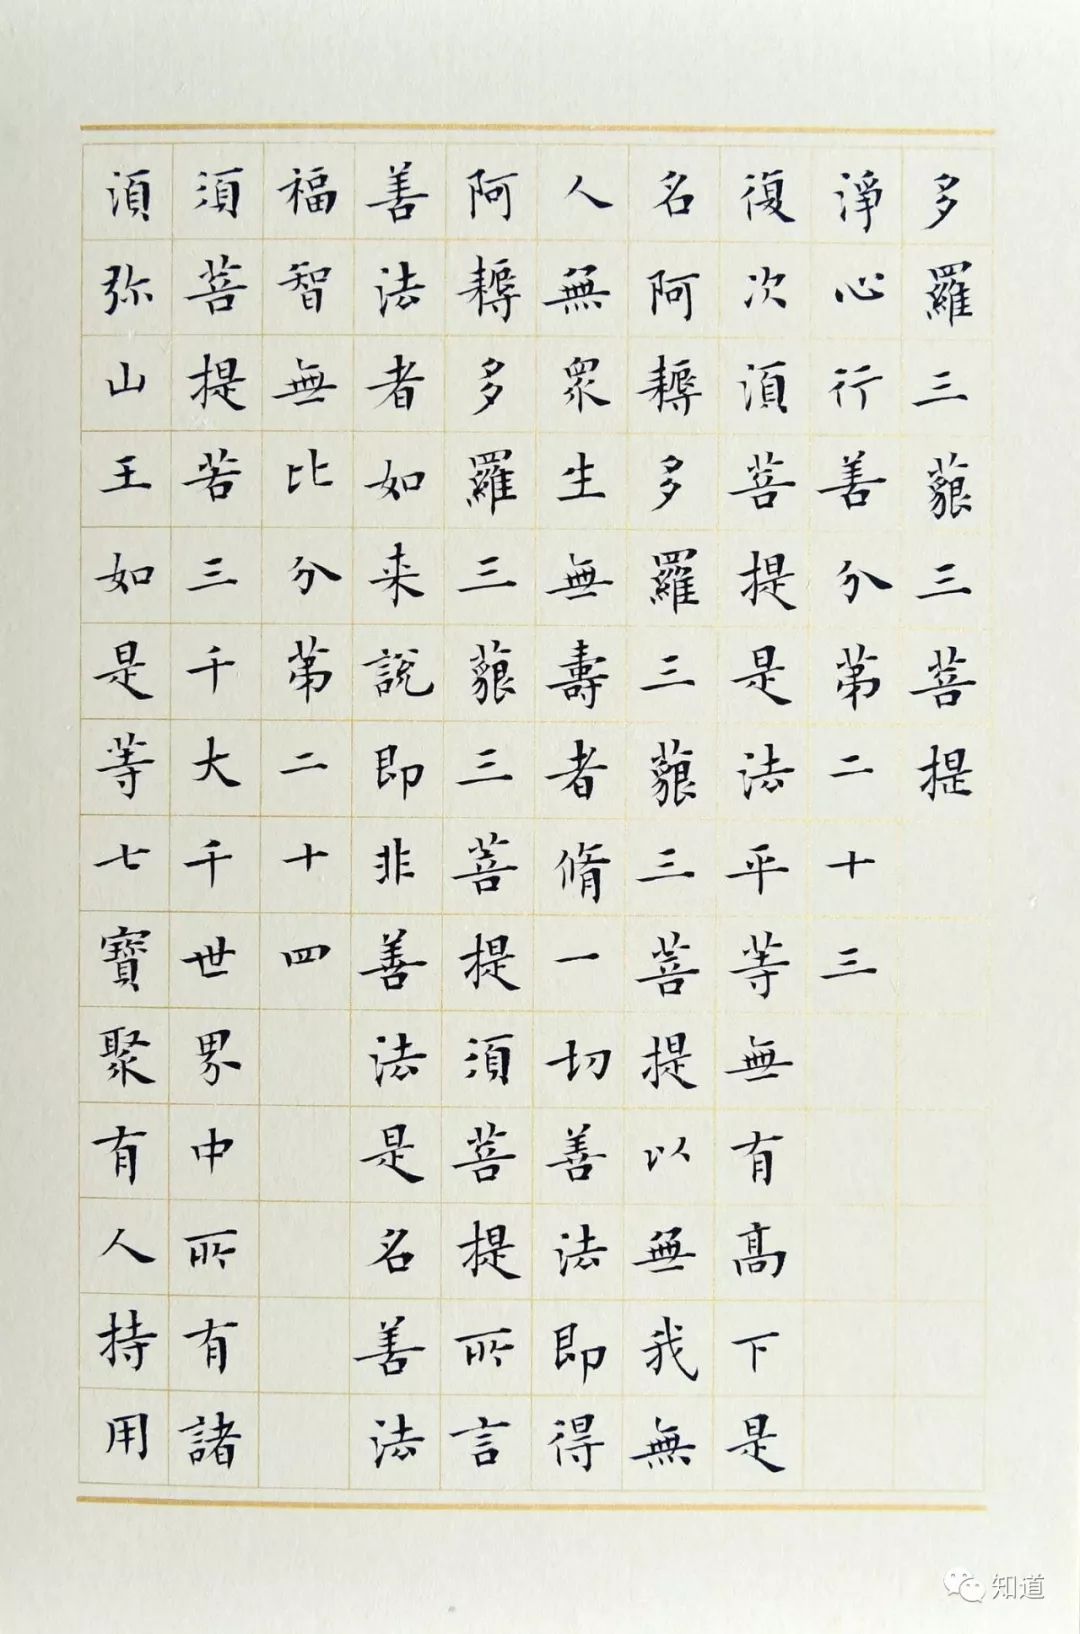 多羅三藐三菩提
淨心行善分第二十三
復次須菩提是法平等無有高下是
名阿耨多羅三藐三菩提以無我無
人無眾生無壽者脩一切善法即得
阿耨多羅三藐三菩提須菩提所言
善法者如来說即非善法是名善法
福智無比分第二十四
須菩提若三千大千世界中所有諸
須弥山王如是等七寶聚有人持用
知道